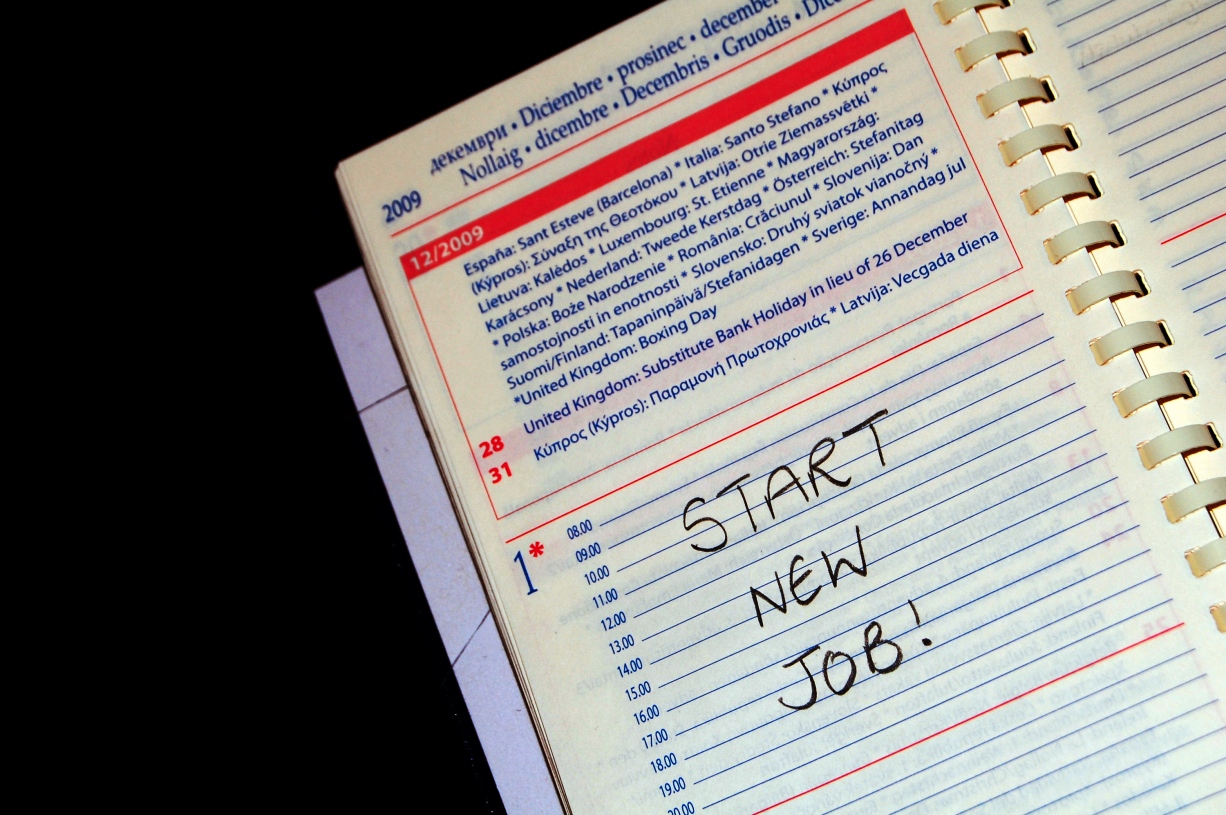 декември • Diciembre • prosinec • december
2009 Nollaig • dicembre • Decembris • Gruodis •
12/2009
España: Sant Esteve (Barcelona) * Italia: Santo Stefano * Κύπρος
(Kýpros): Σύναξη της Θεοτόκου * Latvija: Otrie Ziemassvētki *
Lietuva: Kalėdos * Luxembourg: St. Etienne * Magyarország:
Karácsony * Nederland: Tweede Kerstdag * Österreich: Stefanitag
* Polska: Boże Narodzenie * România: Crăciunul * Slovenija: Dan
samostojnosti in enotnosti * Slovensko: Druhý sviatok vianočný *
Suomi/Finland: Tapaninpäivä/Stefanidagen * Sverige: Annandag jul
*United Kingdom: Boxing Day
28 United Kingdom: Substitute Bank Holiday in lieu of 26 December
31 Κύπρος (Kýpros): Παραμονή Πρωτοχρονιάς * Latvija: Vecgada diena
1*
08.00
09.00
10.00
11.00
12.00
13.00
14.00
15.00
16.00
17.00
18.00
19.00
20.00
START
NEW
JOB!